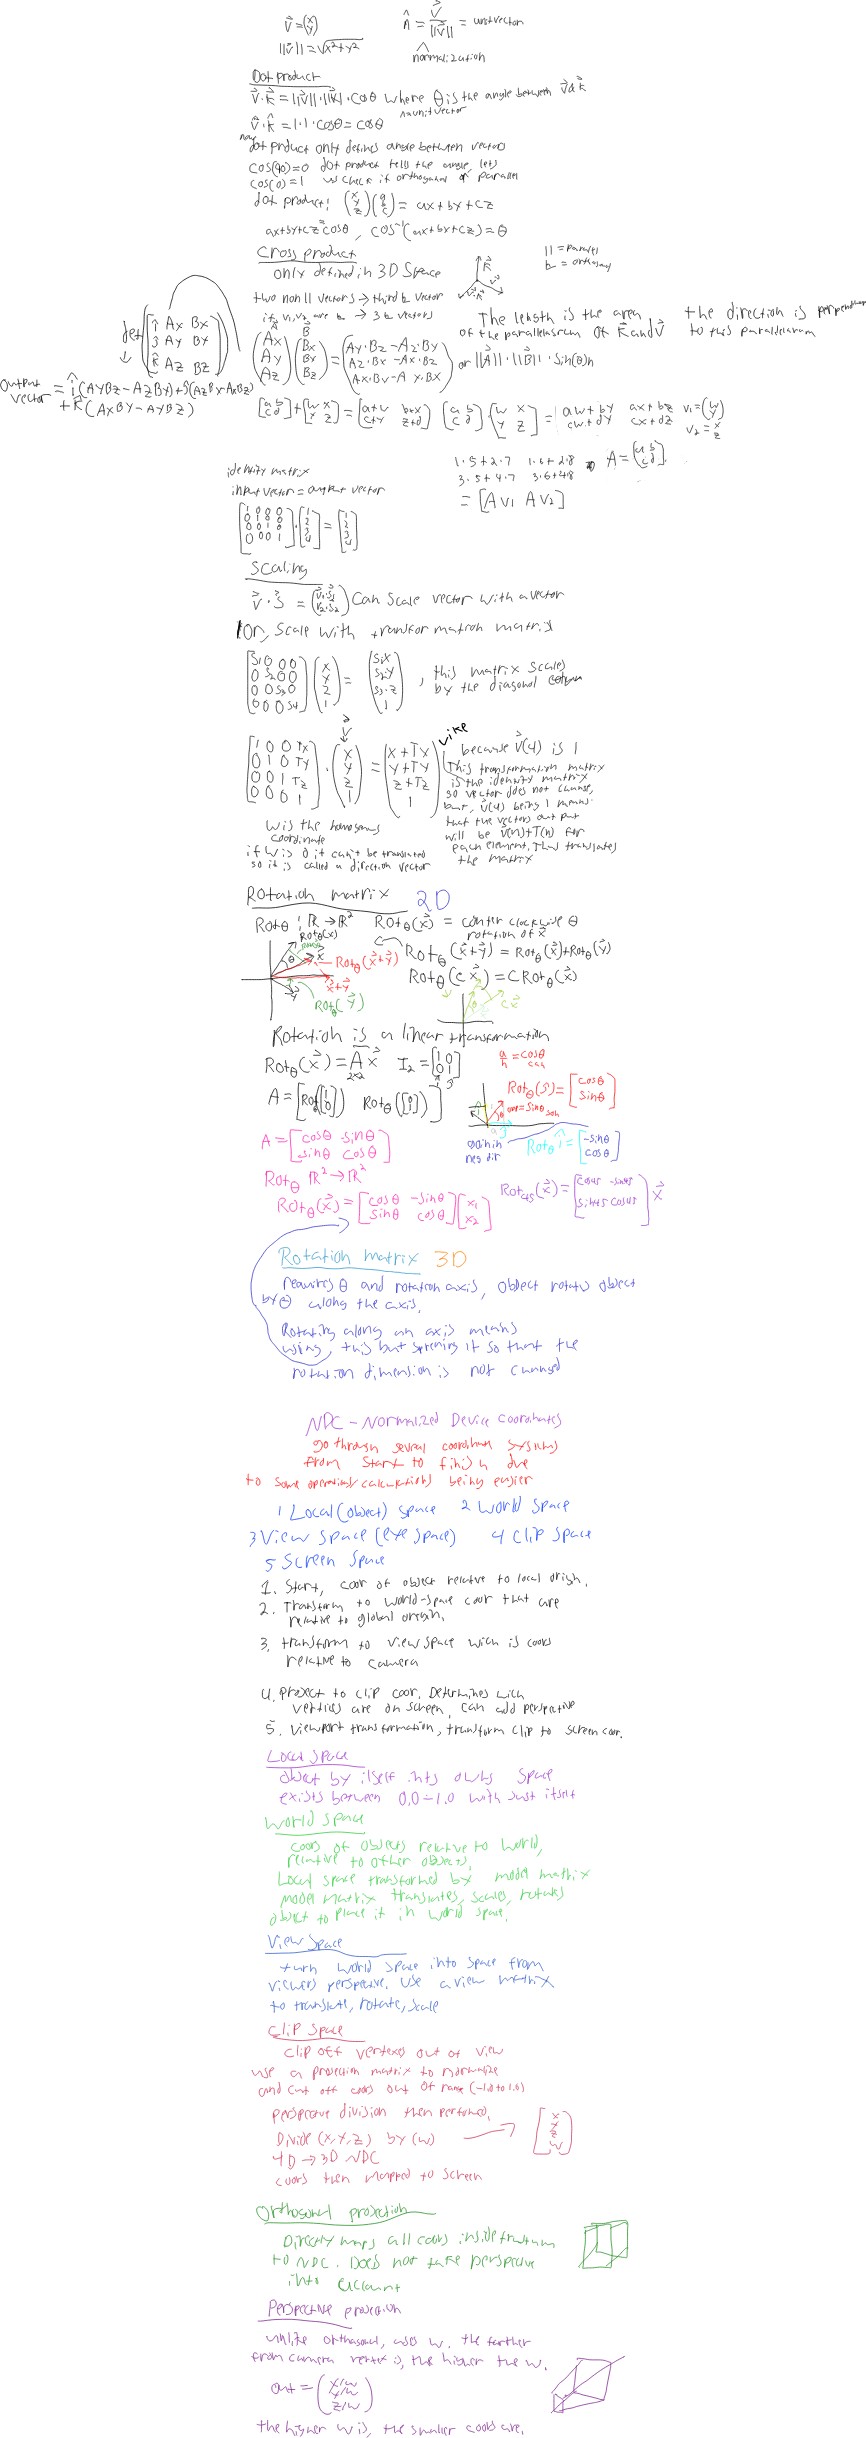 v⃗ = (x y)
||v⃗|| = √x²+y²
n̂ = v⃗ / ||v⃗|| = unit vector
normalization
Dot product
v⃗ · k⃗ = ||v⃗|| · ||k⃗|| · cosθ where θ is the angle between v⃗ & k⃗
v̂ · k̂ = 1 · 1 · cosθ = cosθ
unit vector
now
dot product only defines angle between vectors
cos(90) = 0 dot product tells the angle, lets
cos(0) = 1 us check if orthogonal or parallel
dot product: (x y z)(a b c) = ax + by + cz
ax+by+cz = cosθ, cos⁻¹(ax+by+cz) = θ
Cross product
only defined in 3D Space
|| = parallel
b = orthogonal
two non || vectors → third b vector
if v₁,v₂ are b → 3 b vectors
The length is the area
of the parallelogram of k⃗ and v⃗
the direction is perpendicular
to this parallelogram
det [î Ax Bx
ĵ Ay By
k̂ Az Bz]
(Ax Ay Az)(Bx By Bz) = (Ay·Bz - Az·By
Az·Bx - Ax·Bz
Ax·By - Ay·Bx) or ||A⃗|| · ||B⃗|| · sin(θ)n
output vector = î(AyBz - AzBy) + ĵ(AzBx - AxBz)
+ k̂(AxBy - AyBx)
[a b c d] + [w x y z] = [a+w b+x c+y z+d]
[a b c d] · [w x y z] = [aw+by ax+bz cw+dy cx+dz] v₁ = (w y)
v₂ = x z
1·5+2·7 1·6+2·8
3·5+4·7 3·6+4·8
A = [a b c d]
= [Av₁ Av₂]
identity matrix
input vector = output vector
[1 0 0 0
0 1 0 0
0 0 1 0
0 0 0 1] · [1 2 3 4] = [1 2 3 4]
Scaling
v⃗ · s⃗ = (v⃗₁·s⃗₁ v₂·s₂) Can scale vector with a vector
Or, scale with transformation matrix
[S₁ 0 0 0
0 S₂ 0 0
0 0 S₃ 0
0 0 0 S₄] (x y z 1) = (S₁x S₂y S₃·z 1), this matrix scales
by the diagonal column
[1 0 0 Tx
0 1 0 Ty
0 0 1 Tz
0 0 0 1] · (x y z 1) = (x+Tx y+Ty z+Tz 1)
v⃗
like
because v⃗(4) is 1
This transformation matrix
is the identity matrix
so vector does not change,
but, v⃗(4) being 1 means
that the vectors out put
will be v⃗(n)+T(n) for
each element. Thus translates
the matrix
W is the homogenous
coordinate
if W is 0 it can't be translated
so it is called a direction vector
Rotation matrix 2D
Rotθ : ℝ → ℝ² Rotθ(x⃗) = conter clockwise θ
rotation of x⃗
Rotθ(x⃗+y⃗) = Rotθ(x⃗)+Rotθ(y⃗)
Rotθ(cx⃗) = cRotθ(x⃗)
Rotθ(x)
θ
x⃗
Rotθ(x⃗+y⃗)
x⃗+y⃗
y⃗
Rotθ(y⃗)
cx⃗
Rotation is a linear transformation
Rotθ(x⃗) = Ax⃗ I₂ = [1 0 0 1]
2×2
a/h = cosθ
A = [Rot([1 0]) Rotθ([0 1])]
Rotθ(î) = [cosθ sinθ]
A = [cosθ -sinθ
sinθ cosθ]
origin in
neg dir
Rotθ ĵ = [-sinθ cosθ]
Rotθ ℝ² → ℝ²
Rotθ(x⃗) = [cosθ -sinθ
sinθ cosθ] [x₁ x₂]
Rot₄₅(x⃗) = [cos45 -sin45
sin45 cos45] x⃗
Rotation matrix 3D
requires θ and rotation axis, object rotates object
by θ along the axis,
Rotating along an axis means
using, this but spreading it so that the
rotation dimension is not changed
NDC - Normalized Device coordinates
go through several coordinate systems
from start to finish due
to some operations/calculations being easier
1 Local (object) space 2 World Space
3 View Space (eye space) 4 Clip Space
5 Screen Space
1. Start, coor of object relative to local origin.
2. Transform to world-space coor that are
relative to global origin.
3. transform to view space wich is coors
relative to camera
4. project to clip coor. Determines wich
vertices are on screen, can add perspective
5. Viewport transformation, transform clip to screen coor.
Local Space
object by itself in its owns space
exists between 0.0-1.0 with just itself
World Space
coors of objects relative to world,
relative to other objects.
Local space transformed by model matrix
model matrix translates, scales, rotates
object to place it in world space.
View Space
turn world space into space from
viewers perspective. use a view matrix
to translate, rotate, scale
Clip Space
clip off vertexes out of view
use a projection matrix to normalize
and cut off coors out of range (-1.0 to 1.0)
perspective division then performed.
Divide (x,y,z) by (w) [x y z w]
4D → 3D NDC
coors then mapped to screen
Orthogonal projection
Directly maps all coors inside frustum
to NDC. Does not take perspective
into account
Perspective projection
unlike orthogonal, uses w. the farther
from camera vertex is, the higher the w.
out = (x/w y/w z/w)
the higher w is, the smaller coors are.